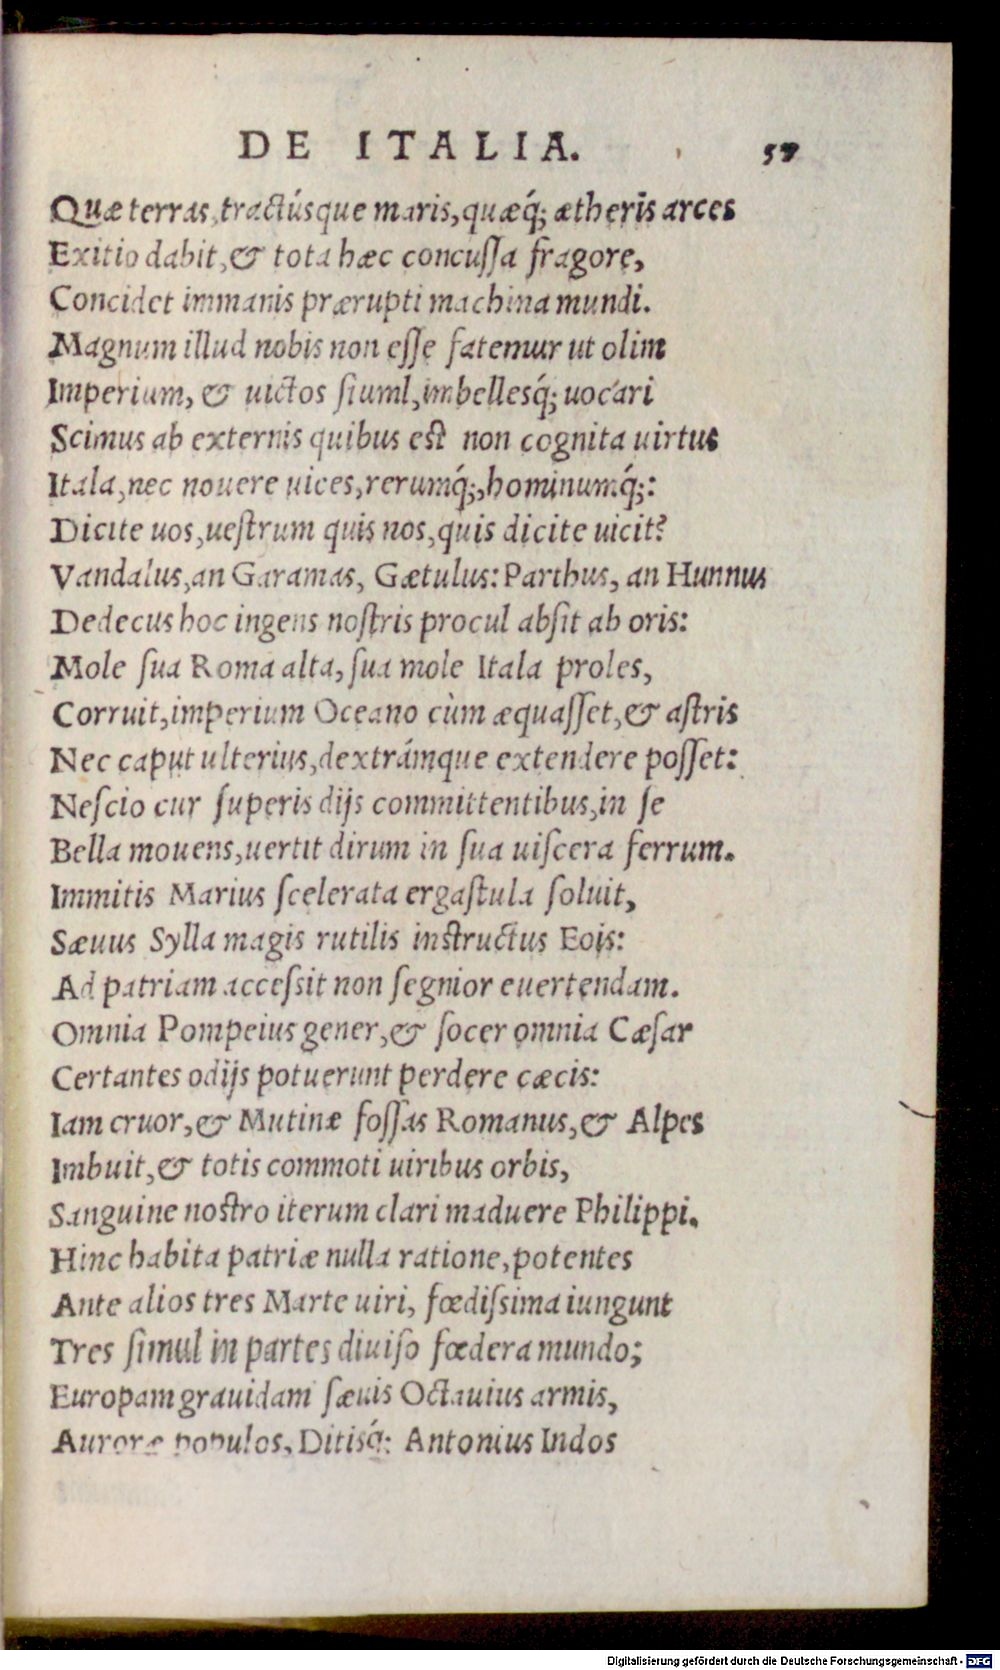 DE ITALIA. 57
Quæ terras, tractúsque maris, quæq́; ætheris arces
Exitio dabit, & tota hæc concuſſa fragore,
Concidet immanis prærupti machina mundi.
Magnum illud nobis non eſſe fatemur ut olim
Imperium, & uictos ſiuml, imbellesq́; uocari
Scimus ab externis quibus est non cognita uirtus
Itala, nec nouere uices, rerumq́;, hominumq́;:
Dicite uos, ueſtrum quis nos, quis dicite uicit?
Vandalus, an Garamas, Gætulus: Parthus, an Hunnus
Dedecus hoc ingens noſtris procul abſit ab oris:
Mole ſua Roma alta, ſua mole Itala proles,
Corruit, imperium Oceano cùm æquaſſet, & aſtris
Nec caput ulterius, dextrámque extendere poſſet:
Neſcio cur ſuperis dijs committentibus, in ſe
Bella mouens, uertit dirum in ſua uiſcera ferrum.
Immitis Marius ſcelerata ergaſtula ſoluit,
Sæuus Sylla magis rutilis instructus Eois:
Ad patriam acceſsit non ſegnior euertendam.
Omnia Pompeius gener, & ſocer omnia Cæſar
Certantes odijs potuerunt perdere cæcis:
Iam cruor, & Mutinæ foſſas Romanus, & Alpes
Imbuit, & totis commoti uiribus orbis,
Sanguine nostro iterum clari maduere Philippi.
Hinc habita patriæ nulla ratione, potentes
Ante alios tres Marte uiri, fœdiſsima iungunt
Tres ſimul in partes diuiſo fœdera mundo;
Europam grauidam ſæuis Octauius armis,
Auroræ populos, Ditisq́; Antonius Indos
Digitalisierung gefördert durch die Deutsche Forschungsgemeinschaft - DFG